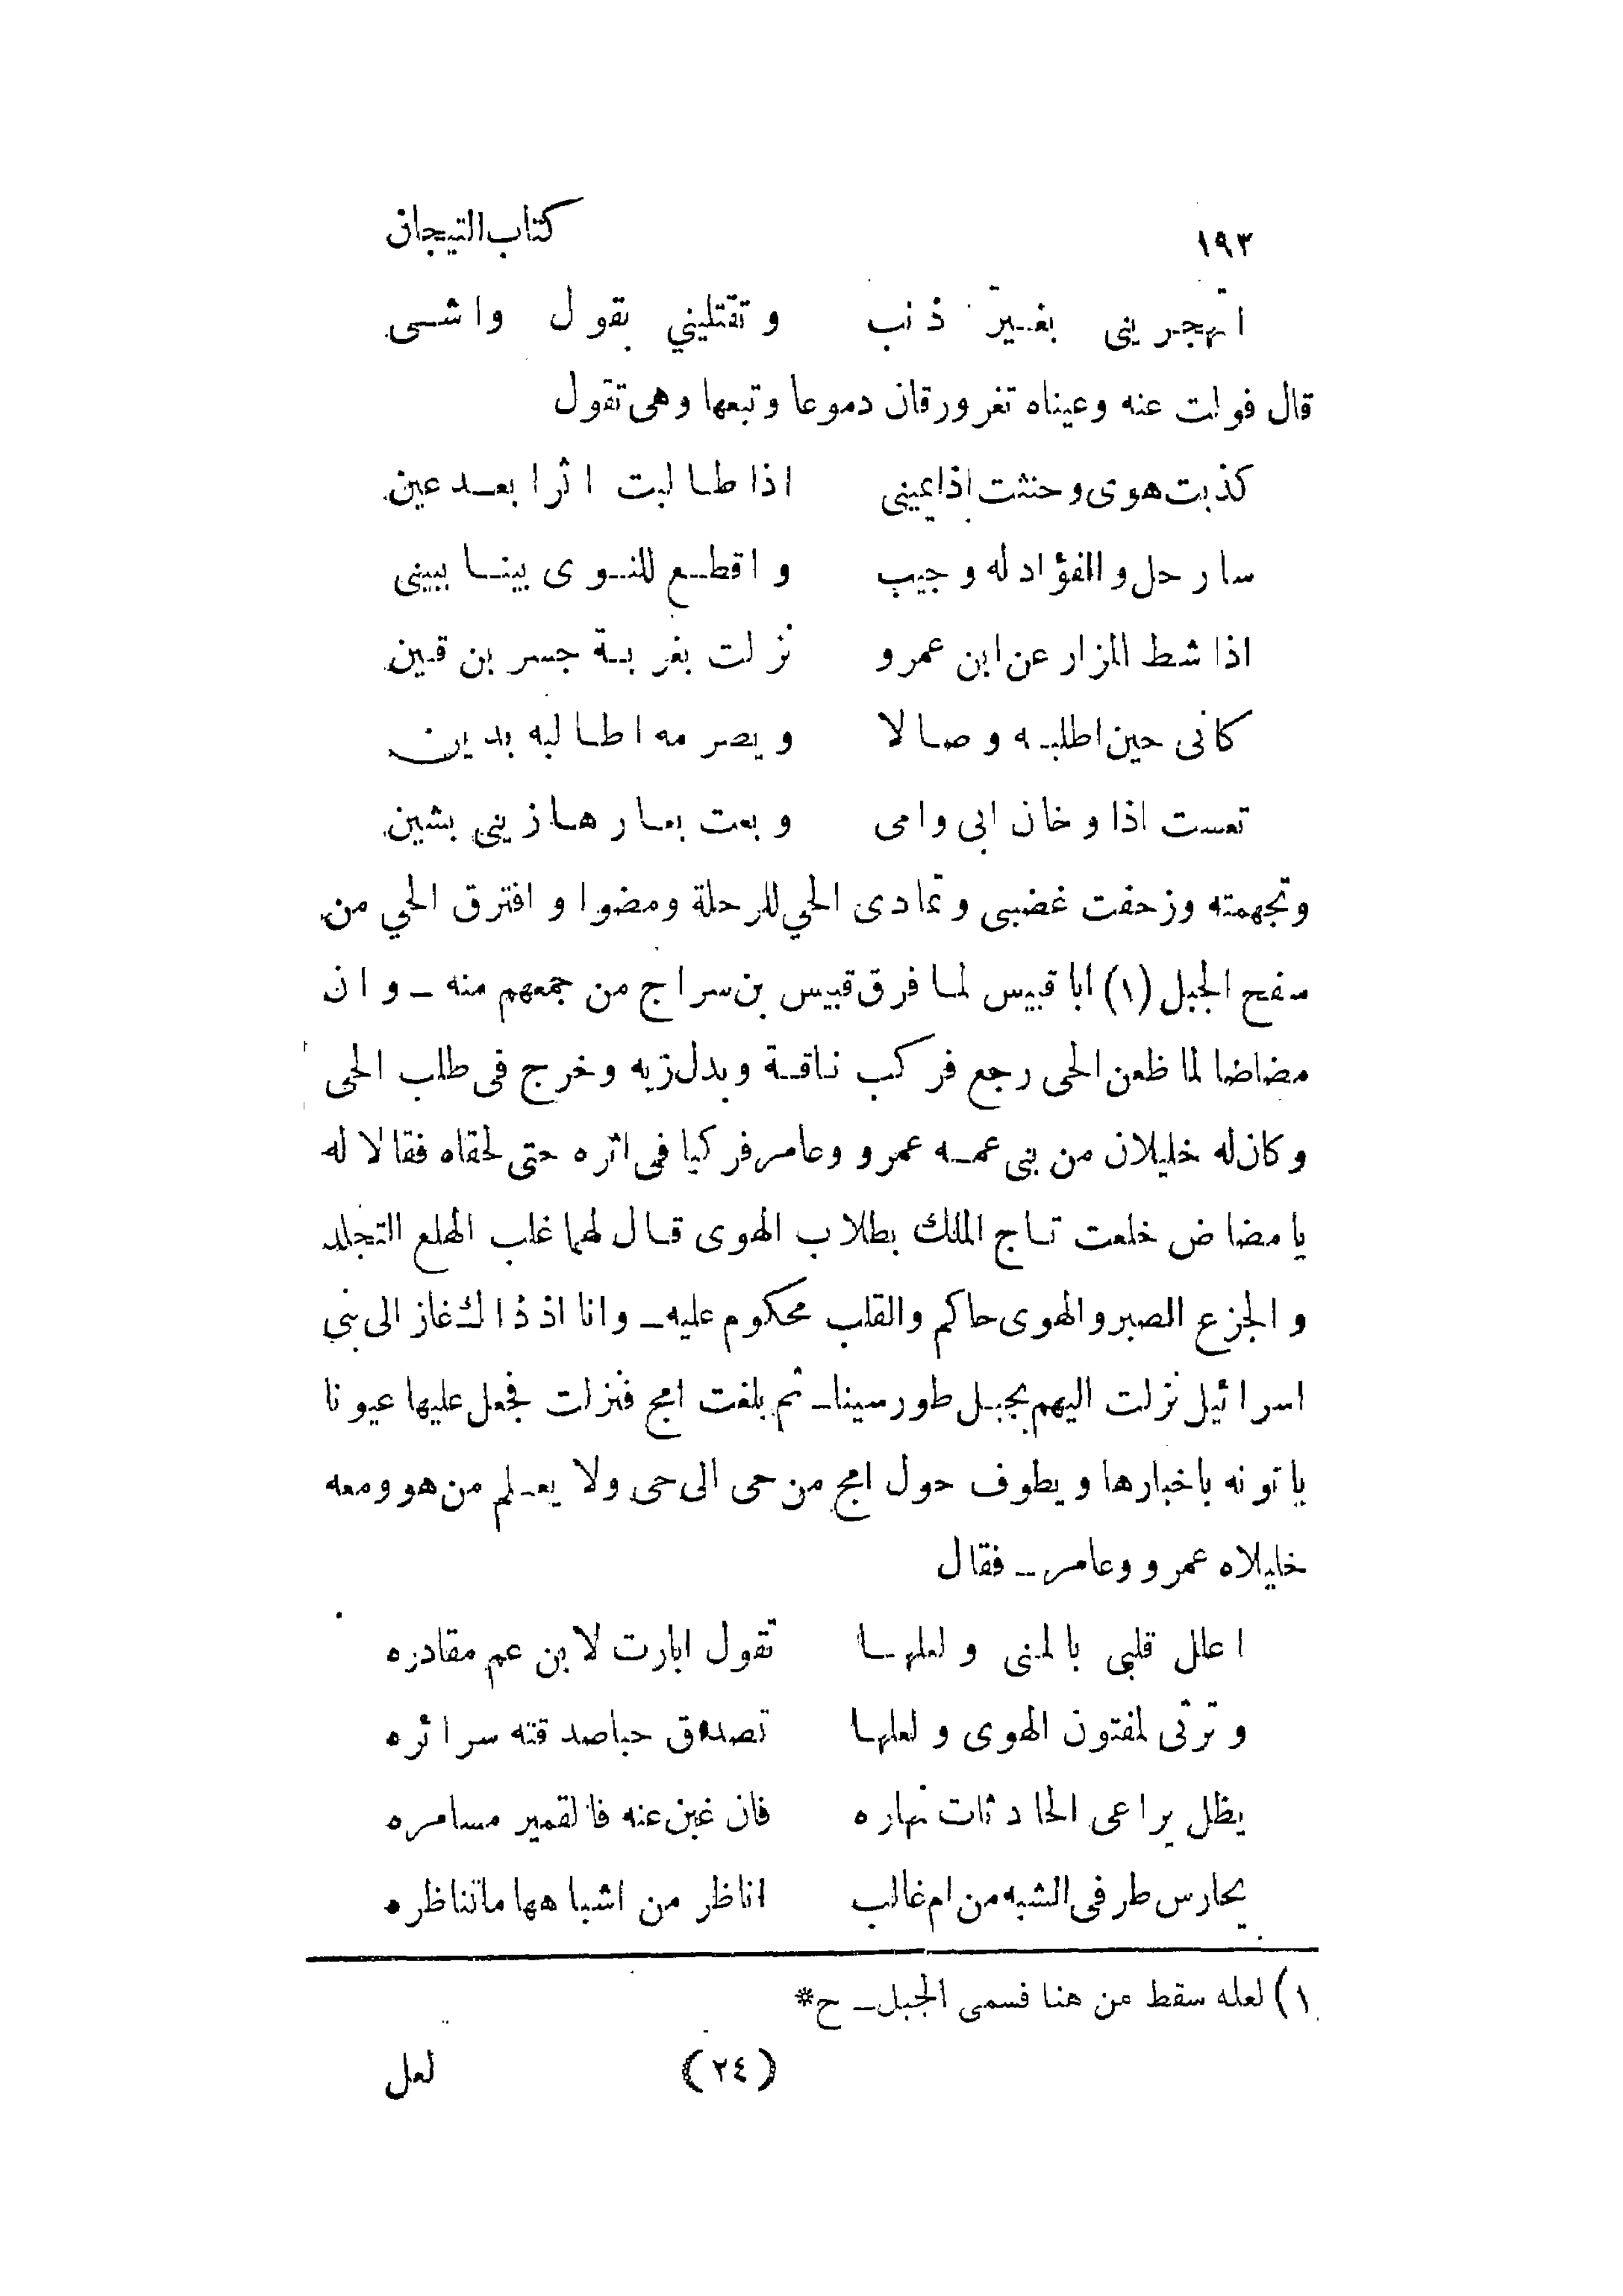 ١٩٣ كتاب التيجان
اتهجريني بغير ذنب وتقتليني بقول واشى
قال فولت عنه وعيناه تغرورقان دموعا وتبعها وهى تقول
كذبت هوى وحنثت اذا يمينى اذا طالبت اثرا بعد عين
سارحل والفؤاد له وجيب واقطع للنوى بينا ببينى
اذا شط المزار عن ابن عمرو نزلت بغربة جسر بن قين
كانى حين اطلبه وصالا ويصرمه اطالبه بدين
تعست اذا وخان ابى وامى وبعت بعارها زينى بشين
وتجهمته وزحفت غضبى وتمادى الحي للرحلة ومضوا وافترق الحي من
سفح الجبل (١) ابا قبيس لما فرق قبيس بن سراج من جمعهم منه ـ وان
مضاضا لما ظعن الحى رجع فركب ناقة وبدل زيه وخرج فى طلب الحى
وكان له خليلان من بنى عمه عمرو وعامر فركبا فى اثره حتى لحقاه فقالا له
يا مضاض خلعت تاج الملك بطلاب الهوى قال لهما غلب الهلع التجلد
والجزع الصبر والهوى حاكم والقلب محكوم عليه ـ وانا اذ ذاك غاز الى بني
اسرائيل نزلت اليهم بجبل طور سينا ـ ثم بلغت امج فنزلت فجعل عليها عيونا
ياتونه باخبارها ويطوف حول امج من حى الى حى ولا يعلم من هو ومعه
خليلاه عمرو وعامر ـ فقال
اعلل قلبى بالمنى ولعلها تقول ابارت لابن عم مقادره
وترثى لمفتون الهوى ولعلها تصدق حبا صدقته سرائره
يظل يراعى الحادثات نهاره فان غبن عنه فالقمير مسامره
يحارس طرفى الشبه من ام غالب اناظر من اشباهها ماتناظره
١) لعله سقط من هنا فسمى الجبل ـ ح*
(٢٤) لعل